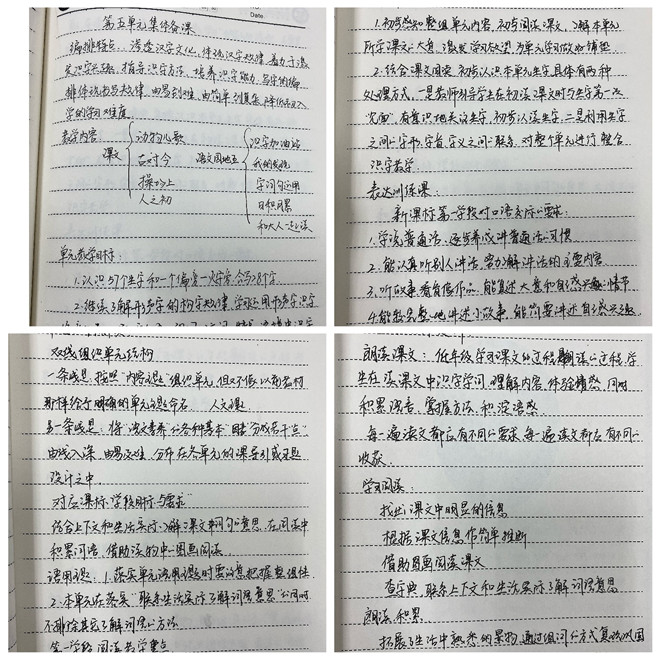 Date
第五单元集体备课
编排特点:渗透汉字文化,体现汉字规律,着力于激
发识字兴趣,指导识字方法,培养识字能力,写字的编
排体现书写规律,由易到难,由简单到复杂,降低写入
学的学习难度
教学内容
课文
动物儿歌
古对今
操场上
人之初
语文园地五
识字加油站
我的发现
字词句运用
日积月累
和大人一起读
单元教学目标:
1.认识57个生字和一个偏旁一次字,会写28个字
2.继续了解形声字的构字规律,学习运用形声字识字
1.初步感知整组单元内容,初步阅读课文,了解本单元
所学课文的人息,激发学习欲望,为单元学习做好铺垫
2.结合课文阅读,初步认识本单元生字,具体有两种
处理方式,一是教师引导学生在初读课文时与生字第一次
"见面",有意识地关注生字,初步认读生字,二是利用生字
之间的字形,字音,字义之间的联系,对整个单元进行整合
识字教学
表达训练课:
新课标第一学段对口语交际的要求:
1.学说普通话,逐步养成讲普通话的习惯
2.能认真听别人讲话,努力了解讲话的主要内容
3.听故事看音像作品,能复述大意和自己感兴趣的情节
4.能较完整地讲述小故事,能简要讲述自己感兴趣
双线组织单元结构
一条线是:按照"内容主题"组织单元,但又不像以前教材
那样给予明确的单元主题命名 人文主题
另一条线是:将"语文素养"的各种基本"因素"分成若干点
由浅入深,由易及难,分布在各单元的课后引或习题
设计之中
对应课标"学段目标与要求"
结合上下文和生活实际了解课文中词句的意思,在阅读中
积累词语,借助读物中的图画阅读
语用主题:1.落实单元语用主题时需注意把握整组性
2.本单元在落实"联系生活实际了解词语意思"的同时
不排除其它了解词语的方法
第一学段阅读教学重点
朗读课文:低年级学习课文的过程就是朗读的过程,学
生在读课文中识字学词,理解内容,体会情感,同时
积累语言,掌握方法,积淀语感
每一遍读文都应有不同的要求,每一遍读文都应有不同的
收获
学习阅读:
找出课文中明显的信息
根据课文信息作简单推断
借助图画阅读课文
查字典,联系上下文和生活实际了解词语意思
朗读积累
拓展了生活中熟悉的事物,通过组词的方式复现巩固